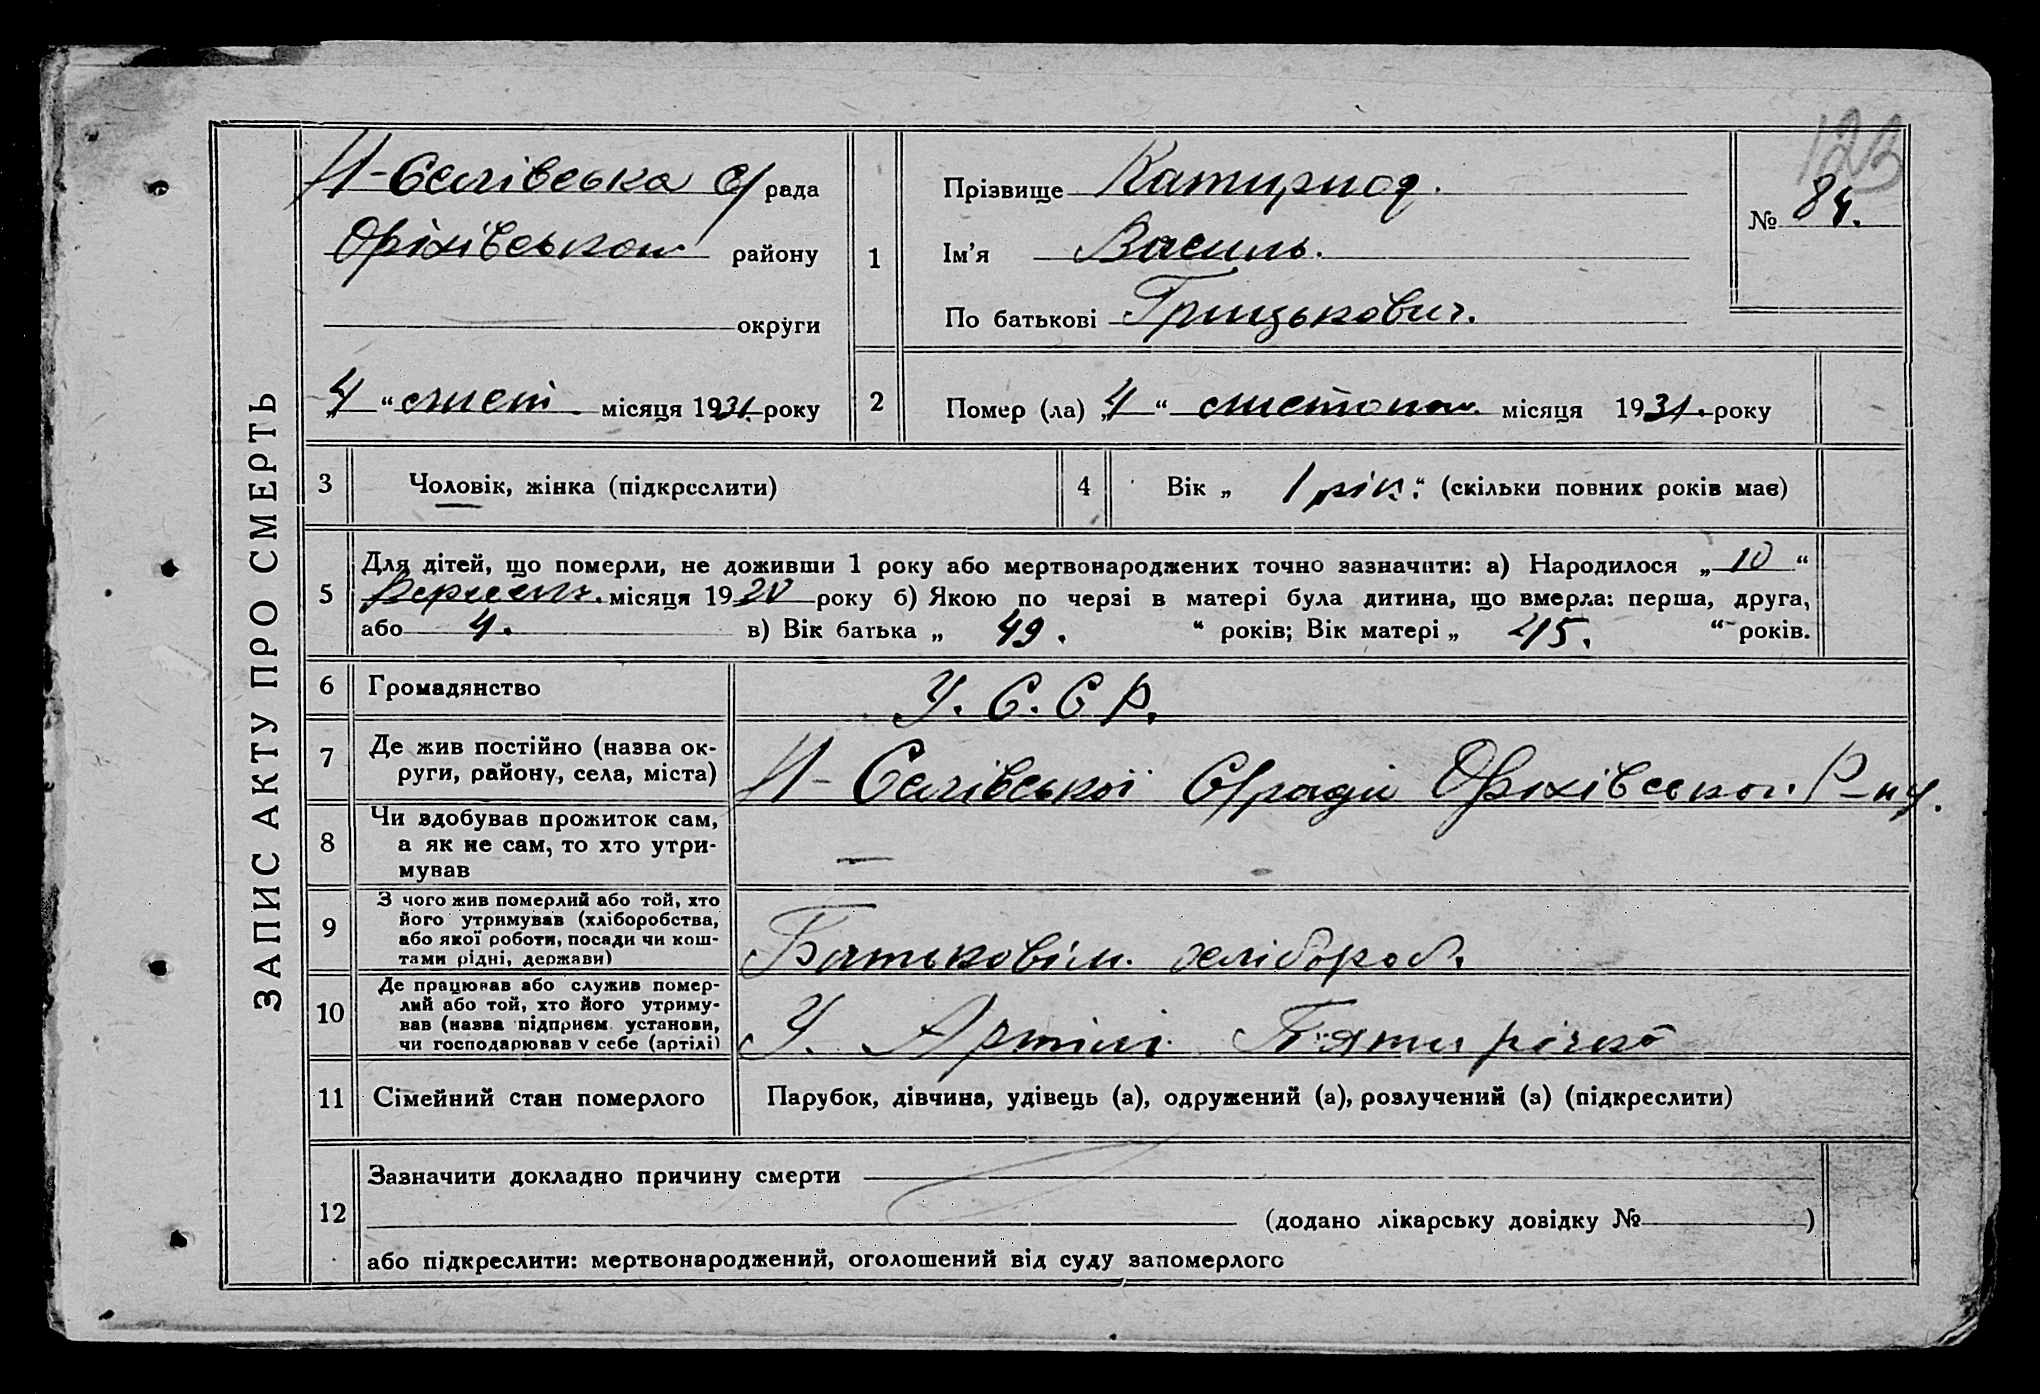 ЗАПИС АКТУ ПРО СМЕРТЬ
123
Н-Селівська С/рада
Оріхівськом району
округи
„4“ лист. місяця 1931 року
1
Прізвище Катириод.
Ім'я Василь.
По батькові Грицькович.
№ 84.
2 Помер (ла) „4“ листопаду місяця 1931. року
3 Чоловік, жінка (підкреслити)
4 Вік „1 рік.“ (скільки повних років має)
5 Для дітей, що померли, не доживши 1 року або мертвонароджених точно зазначити: а) Народилося „10“
Вересн. місяця 1920 року б) Якою по черзі в матері була дитина, що вмерла: перша, друга,
або 4. в) Вік батька „49.“ років; Вік матері „45.“ років.
6 Громадянство У.С.С.Р.
7 Де жив постійно (назва ок-
руги, району, села, міста) Н-Селівської С/ради Оріхівськог. Р-ну.
8 Чи здобував прожиток сам,
а як не сам, то хто утри-
мував —
9 З чого жив померлий або той, хто
його утримував (хліборобства,
або якої роботи, посади чи кош-
тами рідні, держави) Батьковім. хлібороб.
10 Де працював або служив помер-
лий або той, хто його утриму-
вав (назва підприєм. установи,
чи господарював у себе (артілі) У. Артілі. Пяти річка
11 Сімейний стан померлого Парубок, дівчина, удівець (а), одружений (а), розлучений (а) (підкреслити)
12 Зазначити докладно причину смерти
(додано лікарську довідку № )
або підкреслити: мертвонароджений, оголошений від суду запомерлого